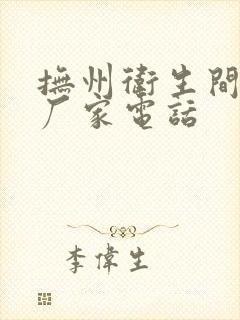 撫州衛生間
厂家電話
李偉生